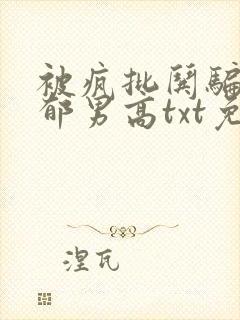 被疯批鬼骗
郁男高txt免
涅瓦